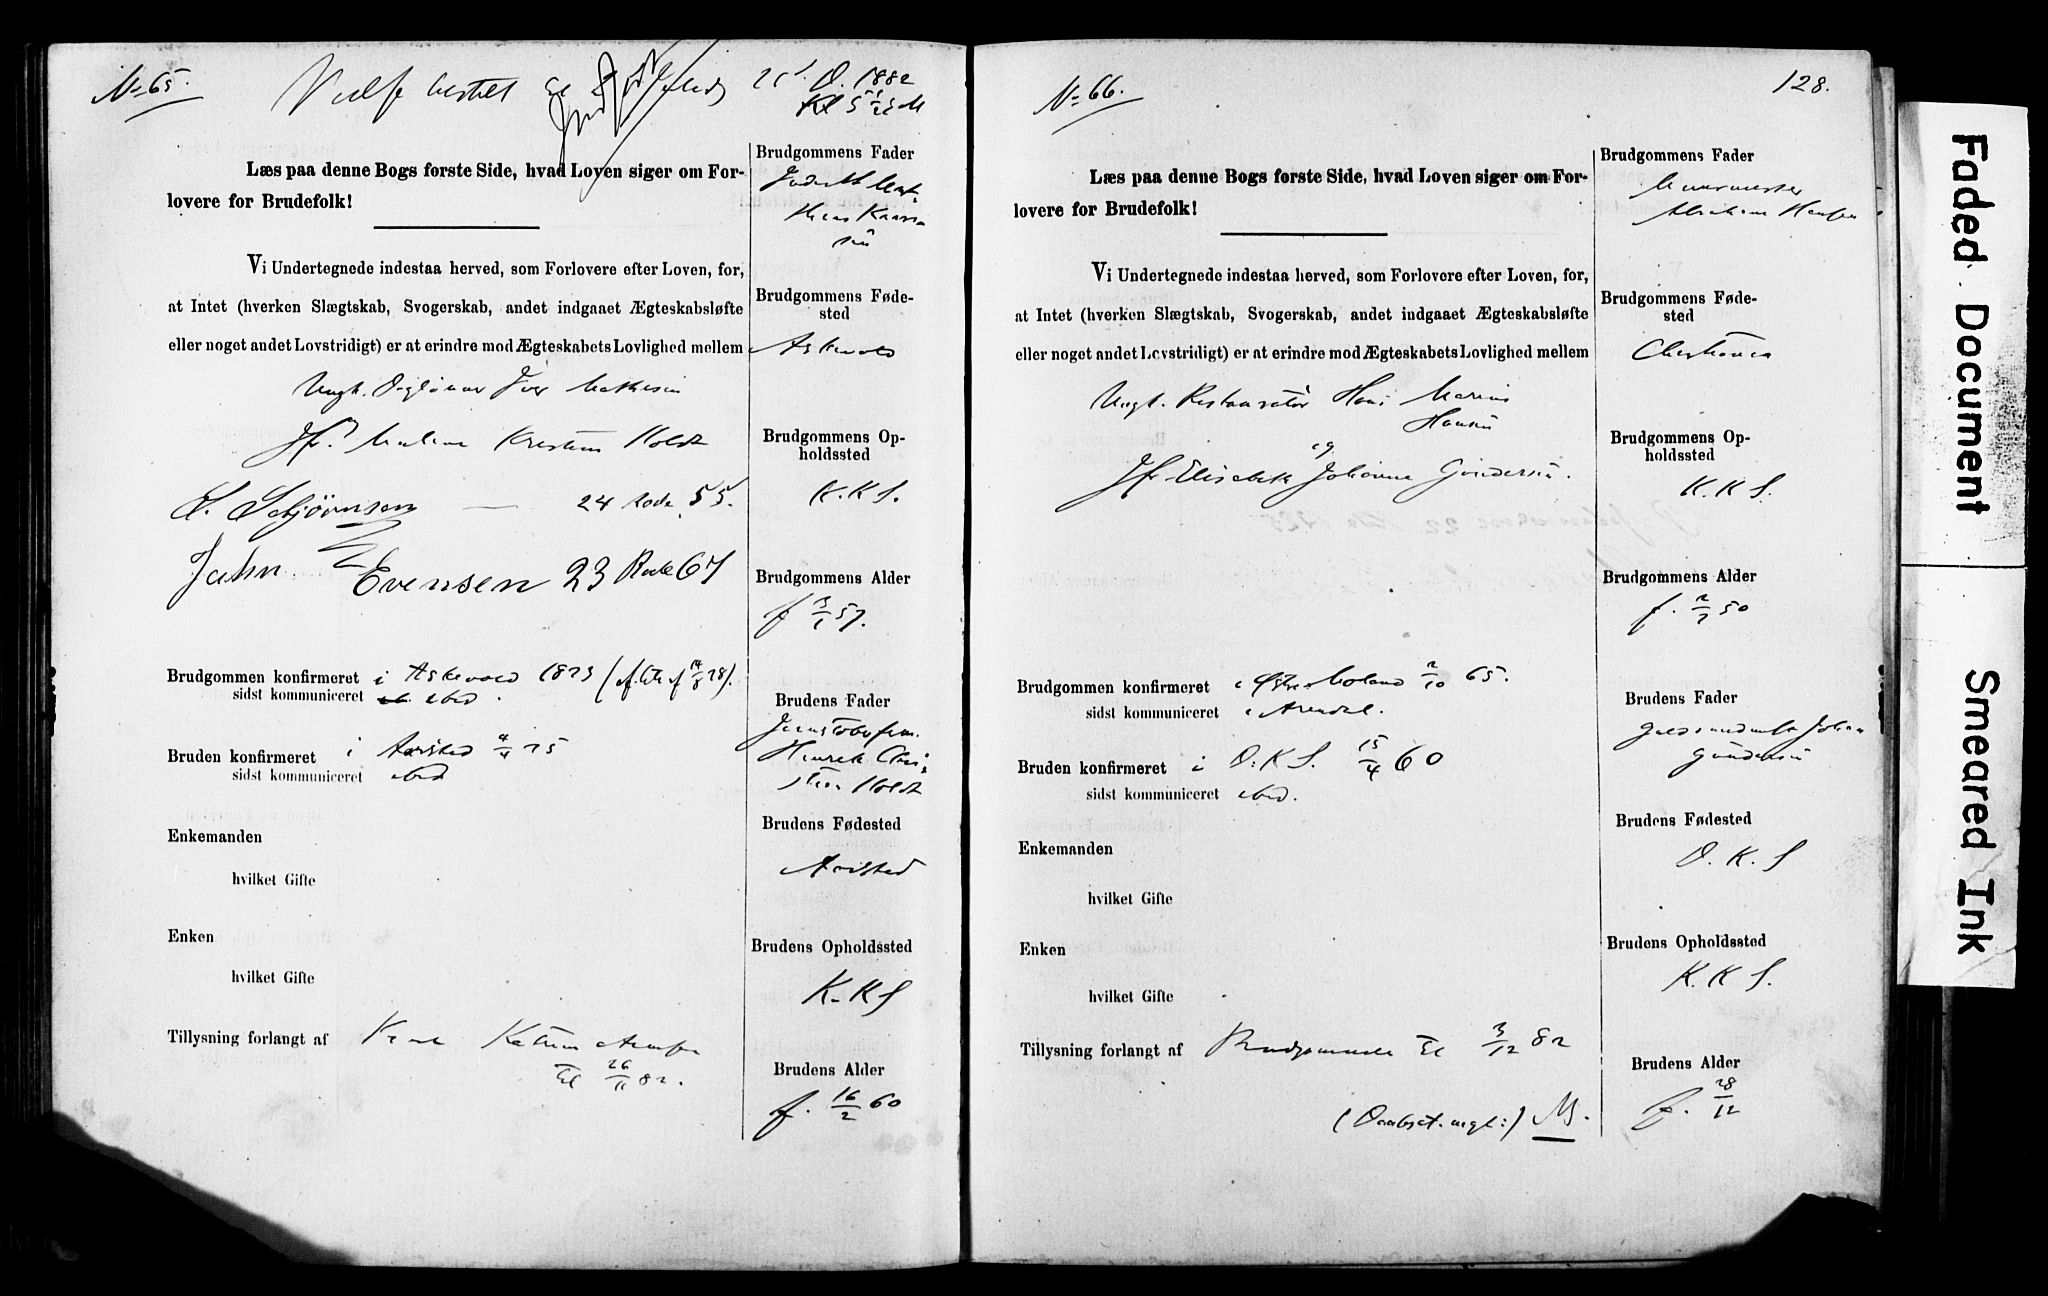 No 65.
1882
Kl 5
Læs paa denne Bogs første Side, hvad Loven siger om For-
lovere for Brudefolk!
Vi Undertegnede indestaa herved, som Forlovere efter Loven, for,
at Intet (hverken Slægtskab, Svogerskab, andet indgaaet Ægteskabsløfte
eller noget andet Lovstridigt) er at erindre mod Ægteskabets Lovlighed mellem
Ungk. Iver Mathisen
Jfr. Malene Holdt
S. Schjörnsen — 24 Rode 55.
Jahn Evensen 23 Rode 67
Brudgommen konfirmeret i Askevold 1873
sidst kommuniceret ibid.
Bruden konfirmeret i Aarstad 75
sidst kommuniceret ibid
Enkemanden
hvilket Gifte
Enken
hvilket Gifte
Tillysning forlangt af
til 26/11 82.
Brudgommens Fader
Brudgommens Føde-
sted
Askevold
Brudgommens Op-
holdssted
K.K.S.
Brudgommens Alder
f 3/1 57.
Brudens Fader
Henrik Chri
stian Holdt
Brudens Fødested
Aarstad
Brudens Opholdssted
K.K.S
Brudens Alder
f. 16/2 60
128.
No 66.
Læs paa denne Bogs første Side, hvad Loven siger om For-
lovere for Brudefolk!
Vi Undertegnede indestaa herved, som Forlovere efter Loven, for,
at Intet (hverken Slægtskab, Svogerskab, andet indgaaet Ægteskabsløfte
eller noget andet Lovstridigt) er at erindre mod Ægteskabets Lovlighed mellem
Ungk. Restauratör Hans Marius
Hansen
og
Jfr Elisabeth Johanne Gundersen.
Brudgommen konfirmeret i Østre Moland 2/10 65.
sidst kommuniceret i Arendal.
Bruden konfirmeret i D.K.S. 15/4 60
sidst kommuniceret ibid.
Enkemanden
hvilket Gifte
Enken
hvilket Gifte
Tillysning forlangt af Brudgommen til 3/12 82
(Daabsat. mgl:)
Brudgommens Fader
Murmester
Abraham Hansen
Brudgommens Føde-
sted
Christiania
Brudgommens Op-
holdssted
K.K.S.
Brudgommens Alder
f. 2/7 50
Brudens Fader
Johan
Gundersen
Brudens Fødested
D.K.S
Brudens Opholdssted
K.K.S.
Brudens Alder
f. 28/12
Faded Document
Smeared Ink